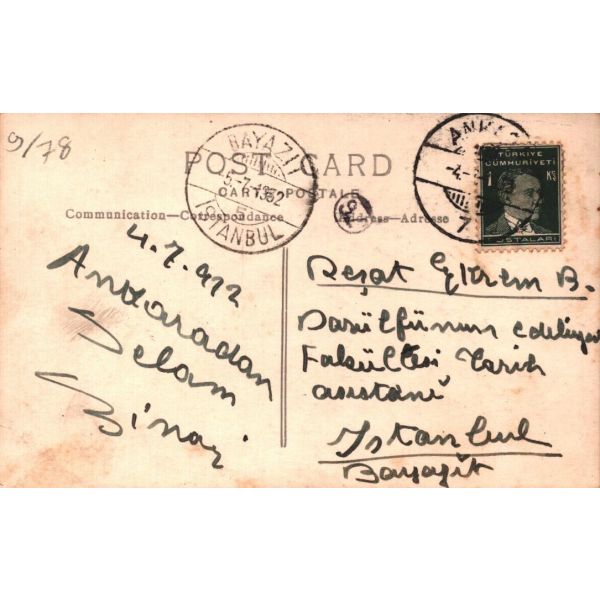 9/78
BAYAZIT
5-7-1932
ISTANBUL
ANKARA
POST CARD
CARTE POSTALE
Communication—Correspondance
Address—Adresse
TÜRKİYE
CÜMHURİYETİ
1 KŞ
POSTALARI
4.7.932
Ankaradan
Selam
Reşat Ekrem B.
Darülfünun edebiyat
Fakültesi Tarih
asistanı
Istanbul
Bayazıt